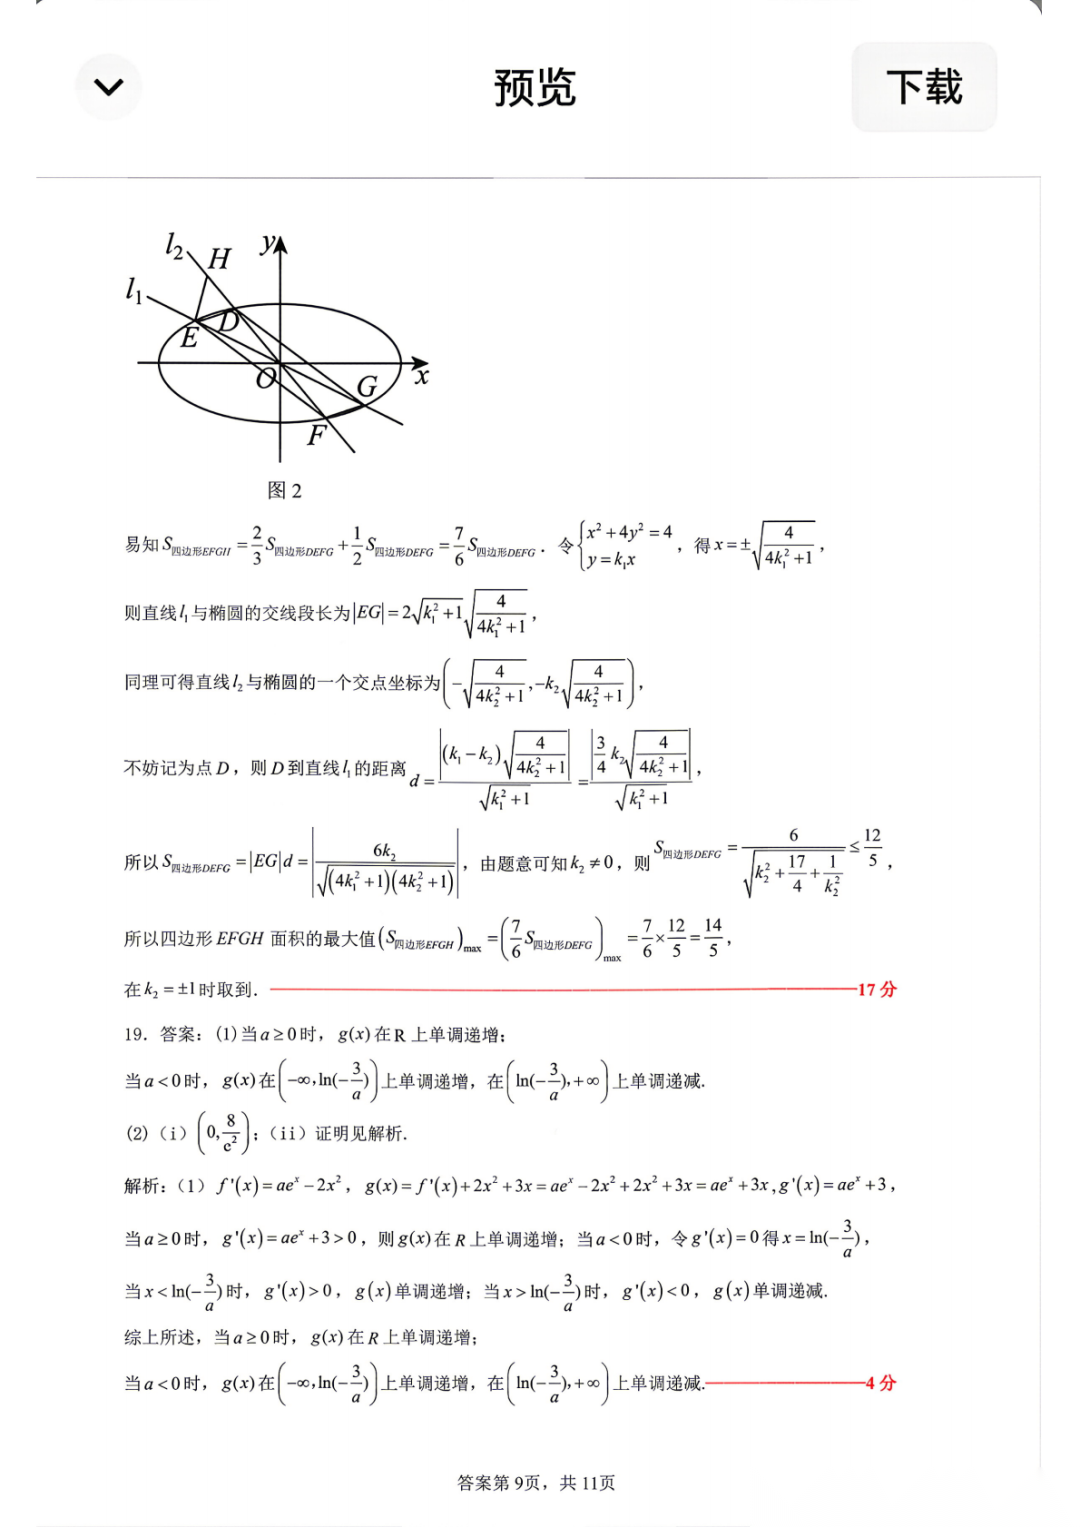 预览
下载
l₂ H y
l₁
E D
O G x
F
图 2
易知 S四边形EFGH = 2/3 S四边形DEFG + 1/2 S四边形DEFG = 7/6 S四边形DEFG . 令 { x² + 4y² = 4, y = k₁x , 得 x = ±√(4/(4k₁² + 1)) ,
则直线 l₁ 与椭圆的交线段长为 |EG| = 2√(k₁² + 1) √(4/(4k₁² + 1)) ,
同理可得直线 l₂ 与椭圆的一个交点坐标为 ( -√(4/(4k₂² + 1)) , -k₂√(4/(4k₂² + 1)) ) ,
不妨记为点 D , 则 D 到直线 l₁ 的距离 d = |(k₁ - k₂)√(4/(4k₂² + 1))| / √(k₁² + 1) = |3/4 k₂√(4/(4k₂² + 1))| / √(k₁² + 1) ,
所以 S四边形DEFG = |EG|d = | 6k₂ / √((4k₁² + 1)(4k₂² + 1)) | , 由题意可知 k₂ ≠ 0 , 则 S四边形DEFG = 6 / √(k₂² + 17/4 + 1/k₂²) ≤ 12/5 ,
所以四边形 EFGH 面积的最大值 (S四边形EFGH)max = (7/6 S四边形DEFG)max = 7/6 × 12/5 = 14/5 ,
在 k₂ = ±1 时取到. 17 分
19. 答案: (1) 当 a ≥ 0 时, g(x) 在 R 上单调递增;
当 a < 0 时, g(x) 在 (-∞, ln(-3/a)) 上单调递增, 在 (ln(-3/a), +∞) 上单调递减.
(2)（i）(0, 8/e²) ;（ii）证明见解析.
解析:（1）f'(x) = aeˣ - 2x² , g(x) = f'(x) + 2x² + 3x = aeˣ - 2x² + 2x² + 3x = aeˣ + 3x , g'(x) = aeˣ + 3 ,
当 a ≥ 0 时, g'(x) = aeˣ + 3 > 0 , 则 g(x) 在 R 上单调递增; 当 a < 0 时, 令 g'(x) = 0 得 x = ln(-3/a) ,
当 x < ln(-3/a) 时, g'(x) > 0 , g(x) 单调递增; 当 x > ln(-3/a) 时, g'(x) < 0 , g(x) 单调递减.
综上所述, 当 a ≥ 0 时, g(x) 在 R 上单调递增;
当 a < 0 时, g(x) 在 (-∞, ln(-3/a)) 上单调递增, 在 (ln(-3/a), +∞) 上单调递减. 4 分
答案第 9页，共 11页